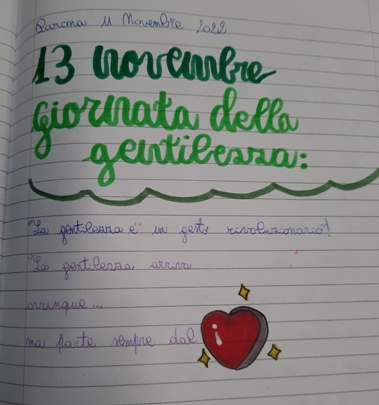 Parma 11 Novembre 2022
13 novembre
giornata della
gentilezza:
"La gentilezza è" un gesto rivoluzionario!
"La gentilezza arriva
ovunque...
ma parte sempre dal